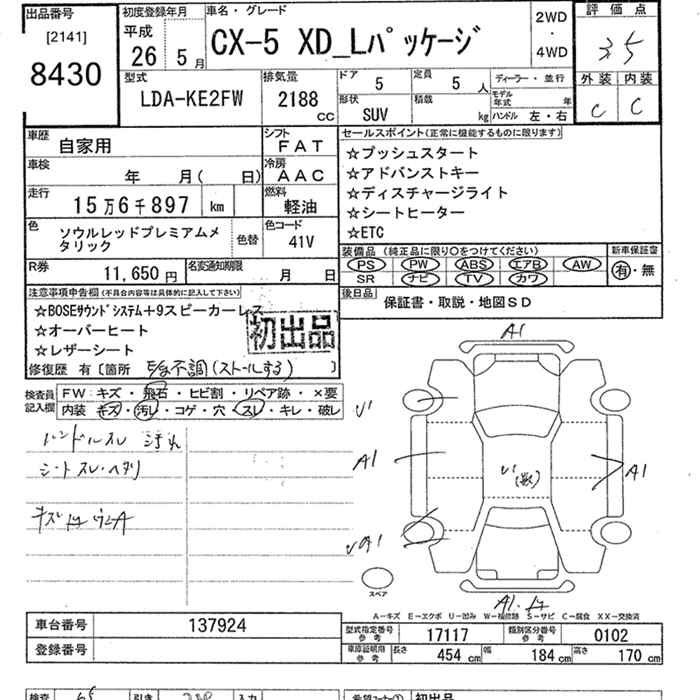 出品番号
[2141]
8430
初度登録年月
平成
26 5月
車名・グレード
CX-5 XD_Lパッケージ
2WD
・
4WD
評価点
3.5
外装 内装
C C
型式
LDA-KE2FW
排気量
2188 cc
ドア 5
定員 5 人
形状 SUV
積載 kg
ディーラー・並行
モデル年式 年
ハンドル 左・右
車歴 自家用
シフト FAT
車検 年 月( 日)
冷房 AAC
走行 15万6千897 km
燃料 軽油
色 ソウルレッドプレミアムメタリック
色替
色コード 41V
R券 11,650円
名変通知期限 月 日
セールスポイント(正常に機能するものに限ります)
☆プッシュスタート
☆アドバンストキー
☆ディスチャージライト
☆シートヒーター
☆ETC
装備品(純正品に限り○をつけてください)
PS PW ABS エアB AW
SR ナビ TV カワ
新車保証書
有・無
後日品 保証書・取説・地図SD
注意事項申告欄(不具合内容等は具体的に記入して下さい)
☆BOSEサウンドシステム+9スピーカーレス
☆オーバーヒート
☆レザーシート
初出品
修復歴 有〔箇所 E/g不調(ストールする) 〕
検査員記入欄
FW: キズ・飛石・ヒビ割・リペア跡・×要
内装 キズ・汚レ・コゲ・穴・スレ・キレ・破レ
ハンドルスレ 汚れ
シートスレ・ヘタリ
A1
A1
A1
スペア
A-キズ E-エクボ U-凹み W-補修跡 S-サビ C-腐食 XX-交換済
車台番号 137924
登録番号
型式指定番号参考 17117
類別区分番号参考 0102
車庫証明用参考 長さ 454cm 幅 184cm 高さ 170cm
初出品